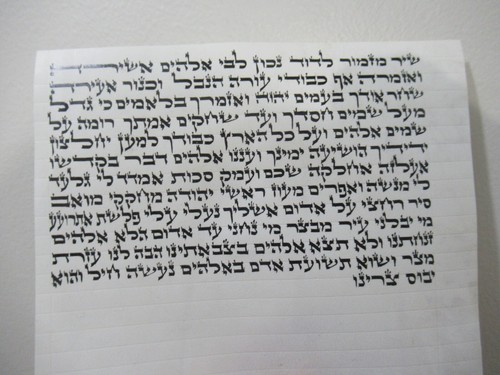 שיר מזמור לדוד נכון לבי אלהים אשירה
ואזמרה אף כבודי עורה הנבל וכנור אעירה
שוחר אודך בעמים יהוה ואזמרך בלאמים כי גדל
מעל שמים חסדך ועד שוחקים אמתך רומה על
שמים אלהים ועל כל הארץ כבודך למען יחלצון
ידידיך הושיעה ימינך ועננו אלהים דבר בקדשו
אעלוזה אחלקה שכם ועמק סכות אמדד לי גלעד
לי מנשה ואפרים מעוז ראשי יהודה מחוקקי מואב
סיר רוחצי על אדום אשליך נעלי עלי פלשת אתרועע
מי יבלני עיר מבצר מי נוחני עד אדום הלא אלהים
זנחתנו ולא תצא אלהים בצבאתינו הבה לנו עזרת
מצר ושוא תשועת אדם באלהים נעשה חיל והוא
יבוס צרינו